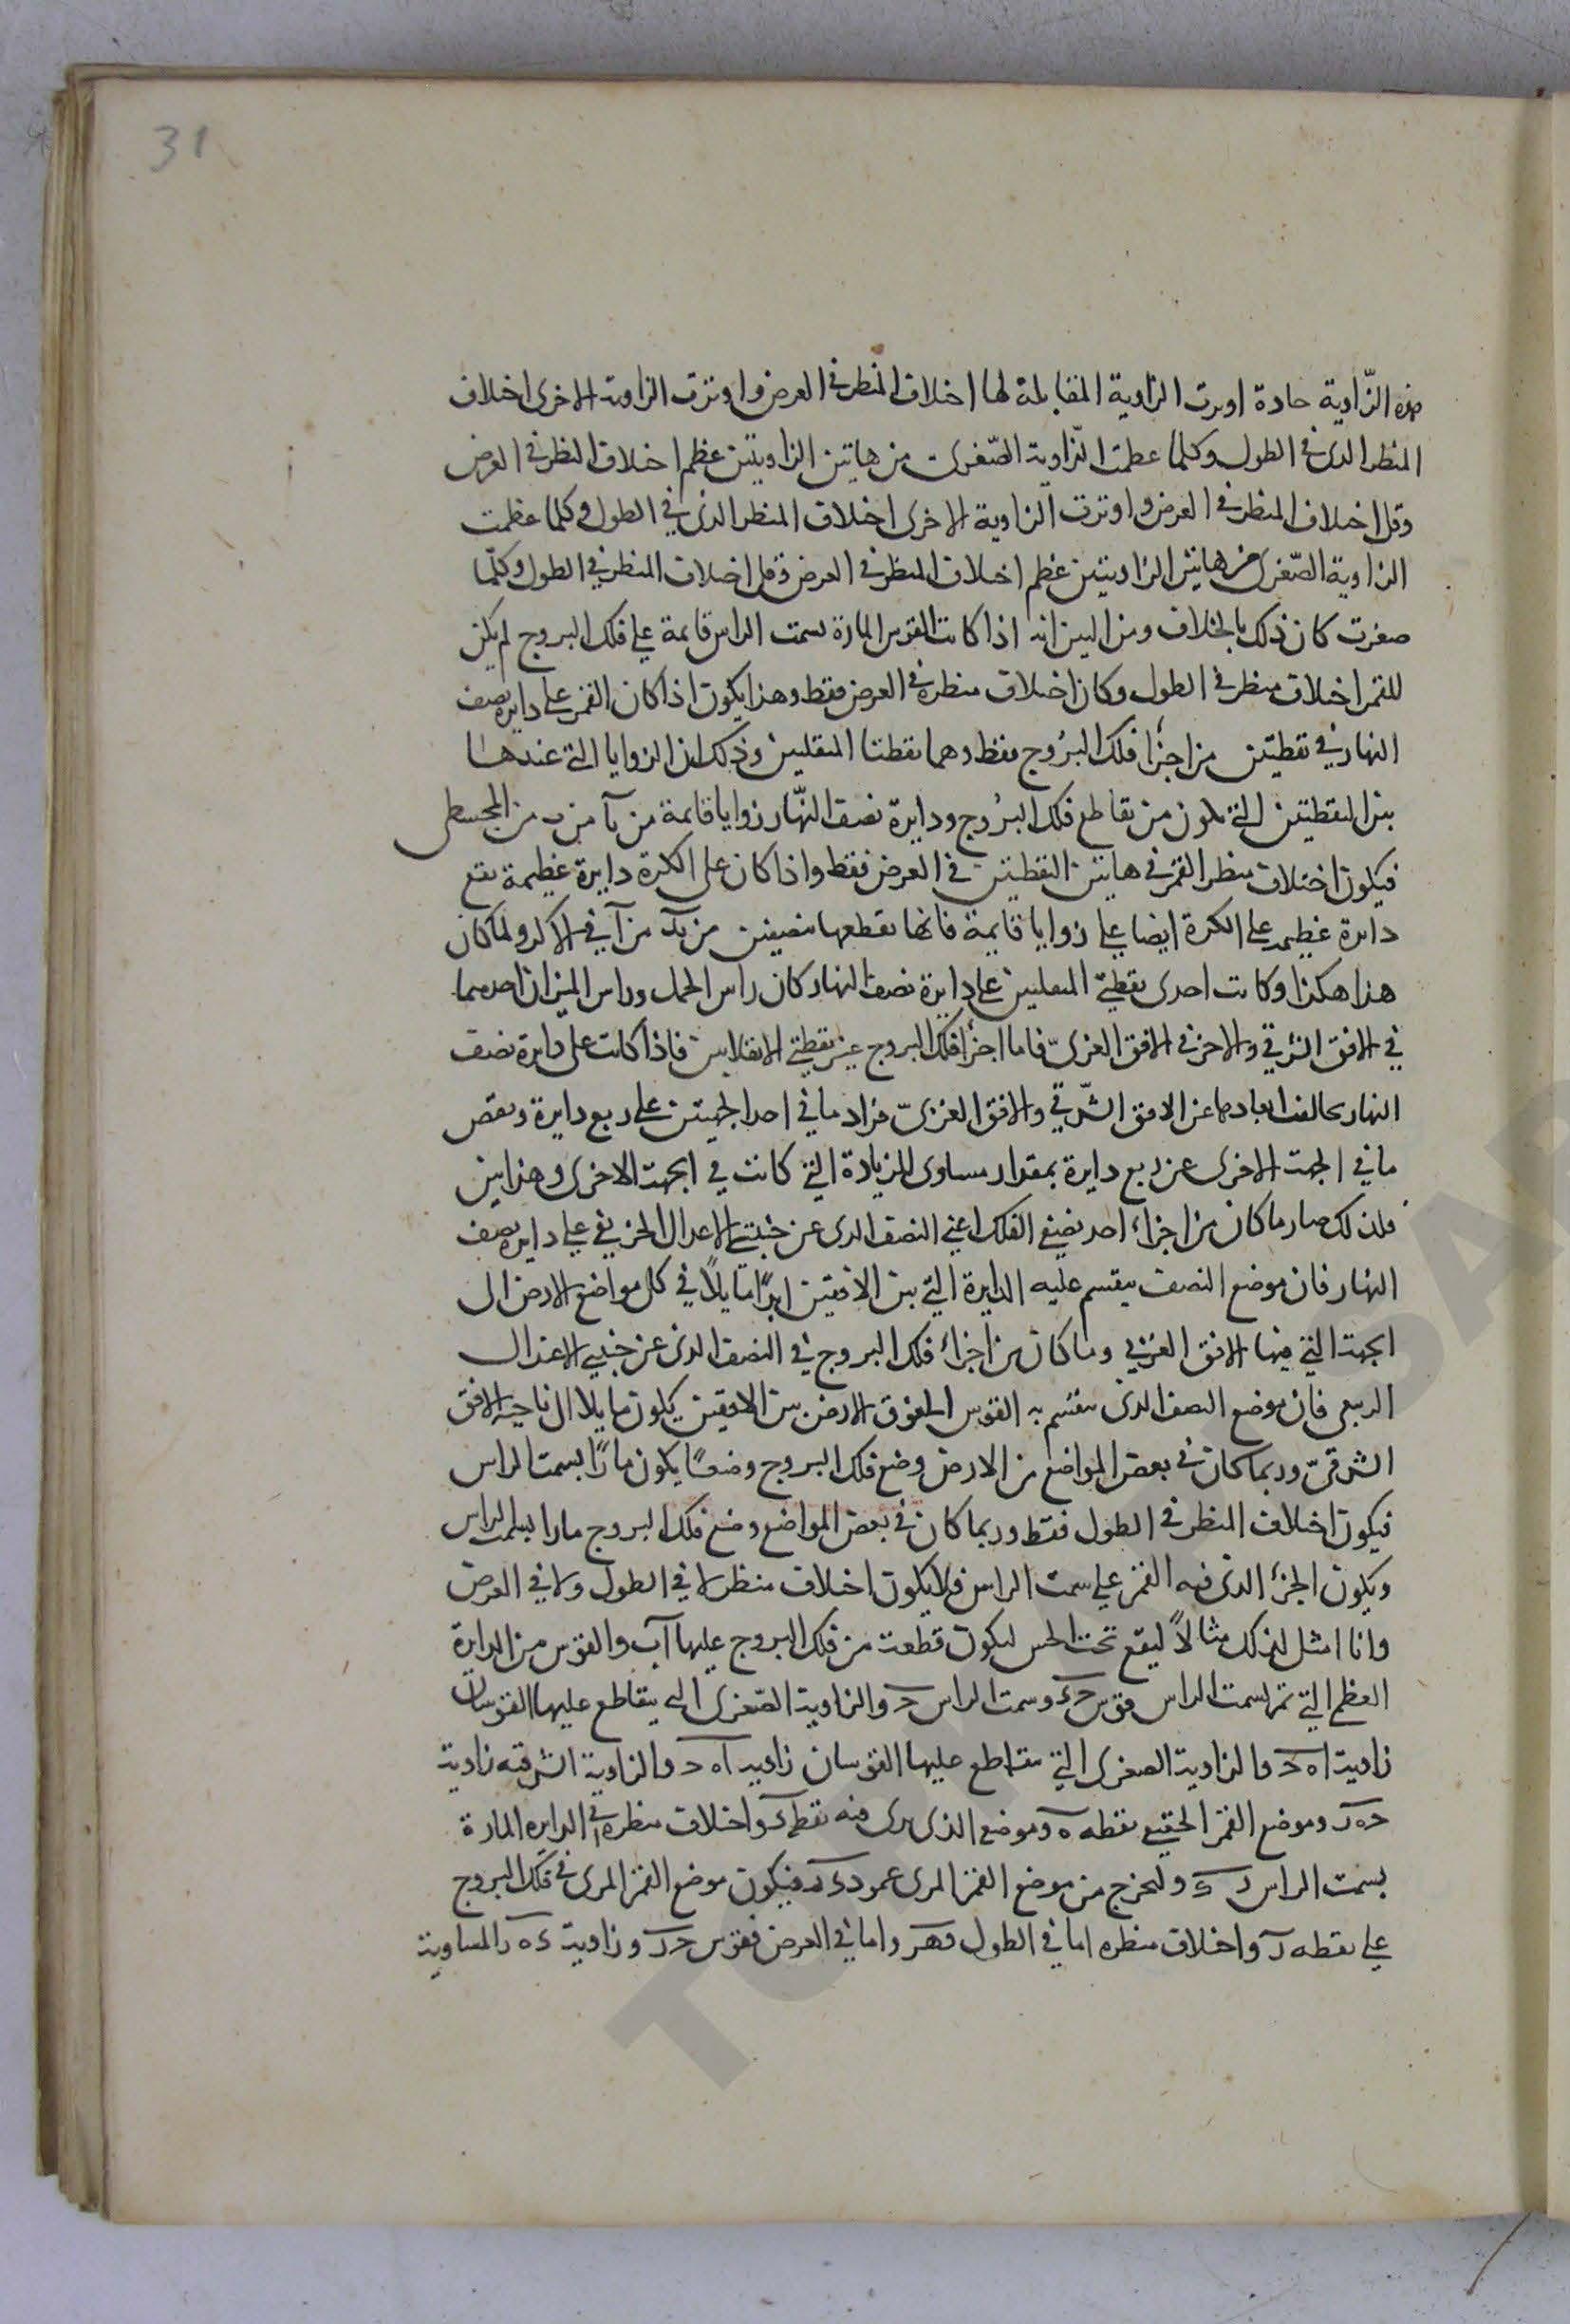 31
هذه الزّاوية حادة اوترت الزاوية المقابلة لها اختلاف المنظر في العرض واوترت الزاوية الاخرى اختلاف
المنظر الذى في الطول وكلما عظمت الزّاوية الصّغرى من هاتين الزاويتين عظم اختلاف المنظر في العرض
وقل اختلاف المنظر في العرض واوترت الزاوية الاخرى اختلاف المنظر الذى في الطول وكلما عظمت
الزاوية الصّغرى من هاتين الزاويتين عظم اختلاف المنظر في العرض وقل اختلاف المنظر في الطول وكلّما
صغرت كان ذلك بالخلاف ومن البين انه اذا كانت القوس المارة بسمت الراس قايمة على فلك البروج لم يكن
للقمر اختلاف منظر في الطول وكان اختلاف منظره في العرض فقط وهذا يكون اذا كان القمر على دايرة نصف
النهار في نقطتين من اجزأ فلك البرُوج فقط وهما نقطتا المنقلبين وذلك ان الزوايا التي عندها
بين النقطتين التي تكون من تقاطع فلك البرُوج ودايرة نصف النّهار زوايا قايمة من آ من ب من المجسطى
فيكون اختلاف منظر القمر في هاتين النقطتين في العرض فقط واذا كان على الكرة دايرة عظيمة تقع
دايرة عظيمه على الكرة ايضا على زوايا قايمة فانها تقطعها بنصفين من يد من آ في الاكر ولما كان
هذا هكذا وكانت احدى نقطتي المنقلبين على دايرة نصف النهار كان راس الحمل وراس الميزان احدهما
في الافق الشرقي والاخر في الافق الغربىّ فاما اجزأ فلك البروج غير نقطتي الانقلابين فاذا كانت على دايرة نصف
النهار تخالف ابعادها عن الافق الشّرقي والافق الغربىّ فزاد ما في احد الجهتين على ربع دايرة ونقص
ما في الجهة الاخرى عن ربع دايرة بمقدار مساوى للزيادة التي كانت في الجهة الاخرى وهذا بين
فلذلك صار ما كان من اجزاء احد نصفي الفلك اعني النصف الذى عن جنبتي الاعتدال الخريفي على دايرة نصف
النهار فان موضع النصف ينقسم عليه الدايرة التي بين الافقين ابدًا مايلاً في كل مواضع الارض الى
الجهة التي فيها الافق الغربي وما كان من اجزاء فلك البروج في النصف الذى عن جنبتي الاعتدال
الربيعي فان موضع النصف الذى ينقسم به القوس التي فوق الارض بين الافقين يكون مايلا الى ناحية الافق
الشرقىّ وربما كان في بعض المواضع من الارض وضع فلك البروج وضعًا يكون مارًا بسمت الراس
فيكون اختلاف المنظر في الطول فقط وربما كان في بعض المواضع وضع فلك البروج مارا بسمت الراس
ويكون الجزء الذى فيه القمر على سمت الراس فلا يكون اختلاف منظر لا في الطول ولا في العرض
وانا امثل لذلك مثالاً ليقع تحت الحس ليكون قطعة من فلك البروج عليها آب والقوس من الدايرة
العظمى التي تمر بسمت الراس قوس حء وسمت الراس ح والزاوية الصّغرى التي يتقاطع عليها القوسان
زاوية اه ح والزاوية الصغرى التي يتقاطع عليها القوسان زاوية اه ح والزاوية الشرقية زاوية
ح ه ر وموضع القمر الحقيقي نقطه ه وموضع الذى يرى فيه نقطة ء واختلاف منظره في الدايره المارة
بسمت الراس ء ولنخرج من موضع القمر المرى عمود ء ر فيكون موضع القمر المرى في فلك البروج
على نقطه ر واختلاف منظره اما في الطول فهر واما في العرض فقوس ح ر وزاوية ء ه ر المساوية